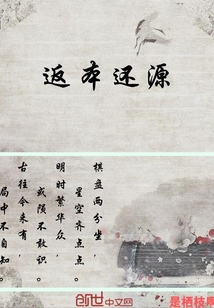 返本还源
棋盘两分坐，
星空齐点点。
明时繁华众，
或陨不敢识。
古往今来有，
局中不自知。
是栖枝鸟
创世中文网
chuangshi.qq.com